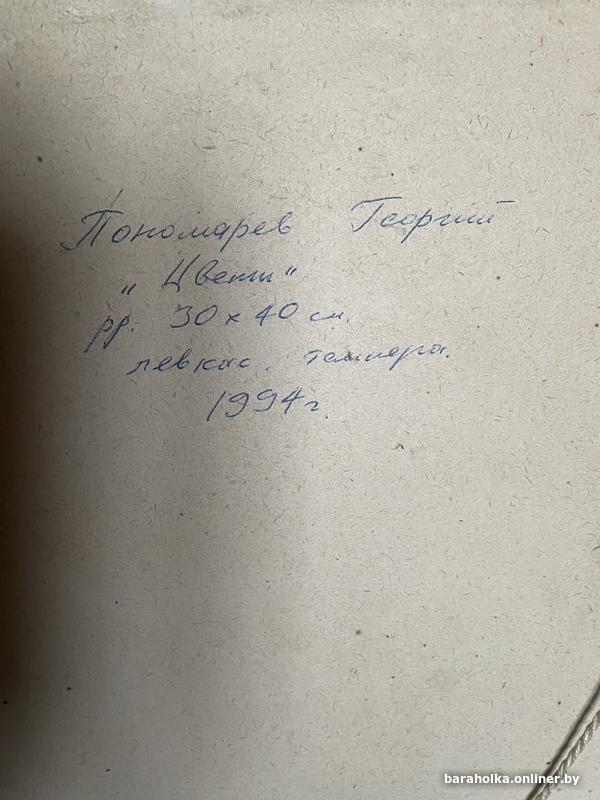 Пономарев Георгий
„Цветы"
рр. 30 х 40 см.
левкас. темпера.
1994 г.
baraholka.onliner.by